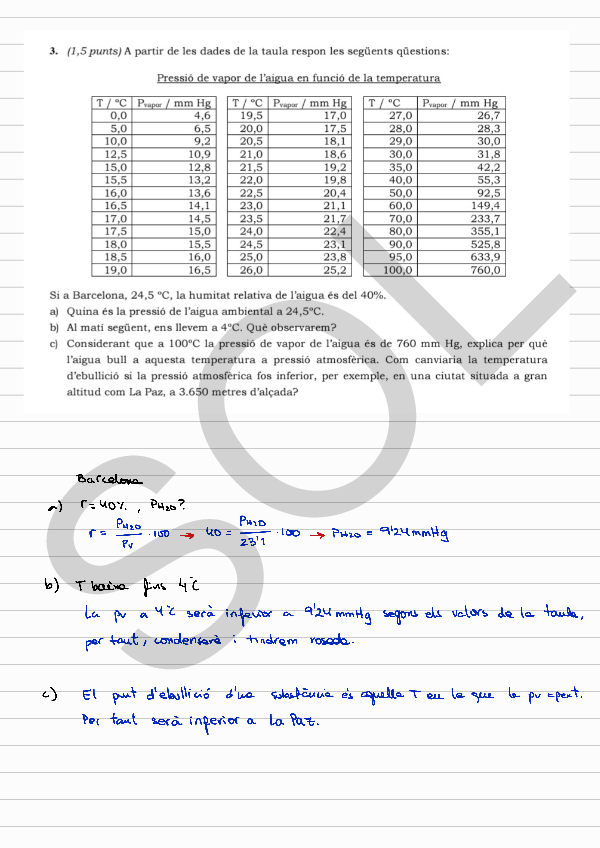 3. (1,5 punts) A partir de les dades de la taula respon les següents qüestions:
Pressió de vapor de l'aigua en funció de la temperatura
T / ºC Pvapor / mm Hg T / ºC Pvapor / mm Hg T / ºC Pvapor / mm Hg
0,0 4,6 19,5 17,0 27,0 26,7
5,0 6,5 20,0 17,5 28,0 28,3
10,0 9,2 20,5 18,1 29,0 30,0
12,5 10,9 21,0 18,6 30,0 31,8
15,0 12,8 21,5 19,2 35,0 42,2
15,5 13,2 22,0 19,8 40,0 55,3
16,0 13,6 22,5 20,4 50,0 92,5
16,5 14,1 23,0 21,1 60,0 149,4
17,0 14,5 23,5 21,7 70,0 233,7
17,5 15,0 24,0 22,4 80,0 355,1
18,0 15,5 24,5 23,1 90,0 525,8
18,5 16,0 25,0 23,8 95,0 633,9
19,0 16,5 26,0 25,2 100,0 760,0
Si a Barcelona, 24,5 ºC, la humitat relativa de l'aigua és del 40%.
a) Quina és la pressió de l'aigua ambiental a 24,5ºC.
b) Al matí següent, ens llevem a 4ºC. Què observarem?
c) Considerant que a 100ºC la pressió de vapor de l'aigua és de 760 mm Hg, explica per què
l'aigua bull a aquesta temperatura a pressió atmosfèrica. Com canviaria la temperatura
d'ebullició si la pressió atmosfèrica fos inferior, per exemple, en una ciutat situada a gran
altitud com La Paz, a 3.650 metres d'alçada?
SOL
Barcelona
a) r = 40%, PH2O?
r = PH2O / Pv · 100 → 40 = PH2O / 23'1 · 100 → PH2O = 9'24 mmHg
b) T baixa fins 4ºC
La pv a 4ºC serà inferior a 9'24 mmHg segons els valors de la taula,
per tant, condensarà i tindrem rosada.
c) El punt d'ebullició d'una substància és aquella T en la que la pv = pext.
Per tant serà inferior a La Paz.